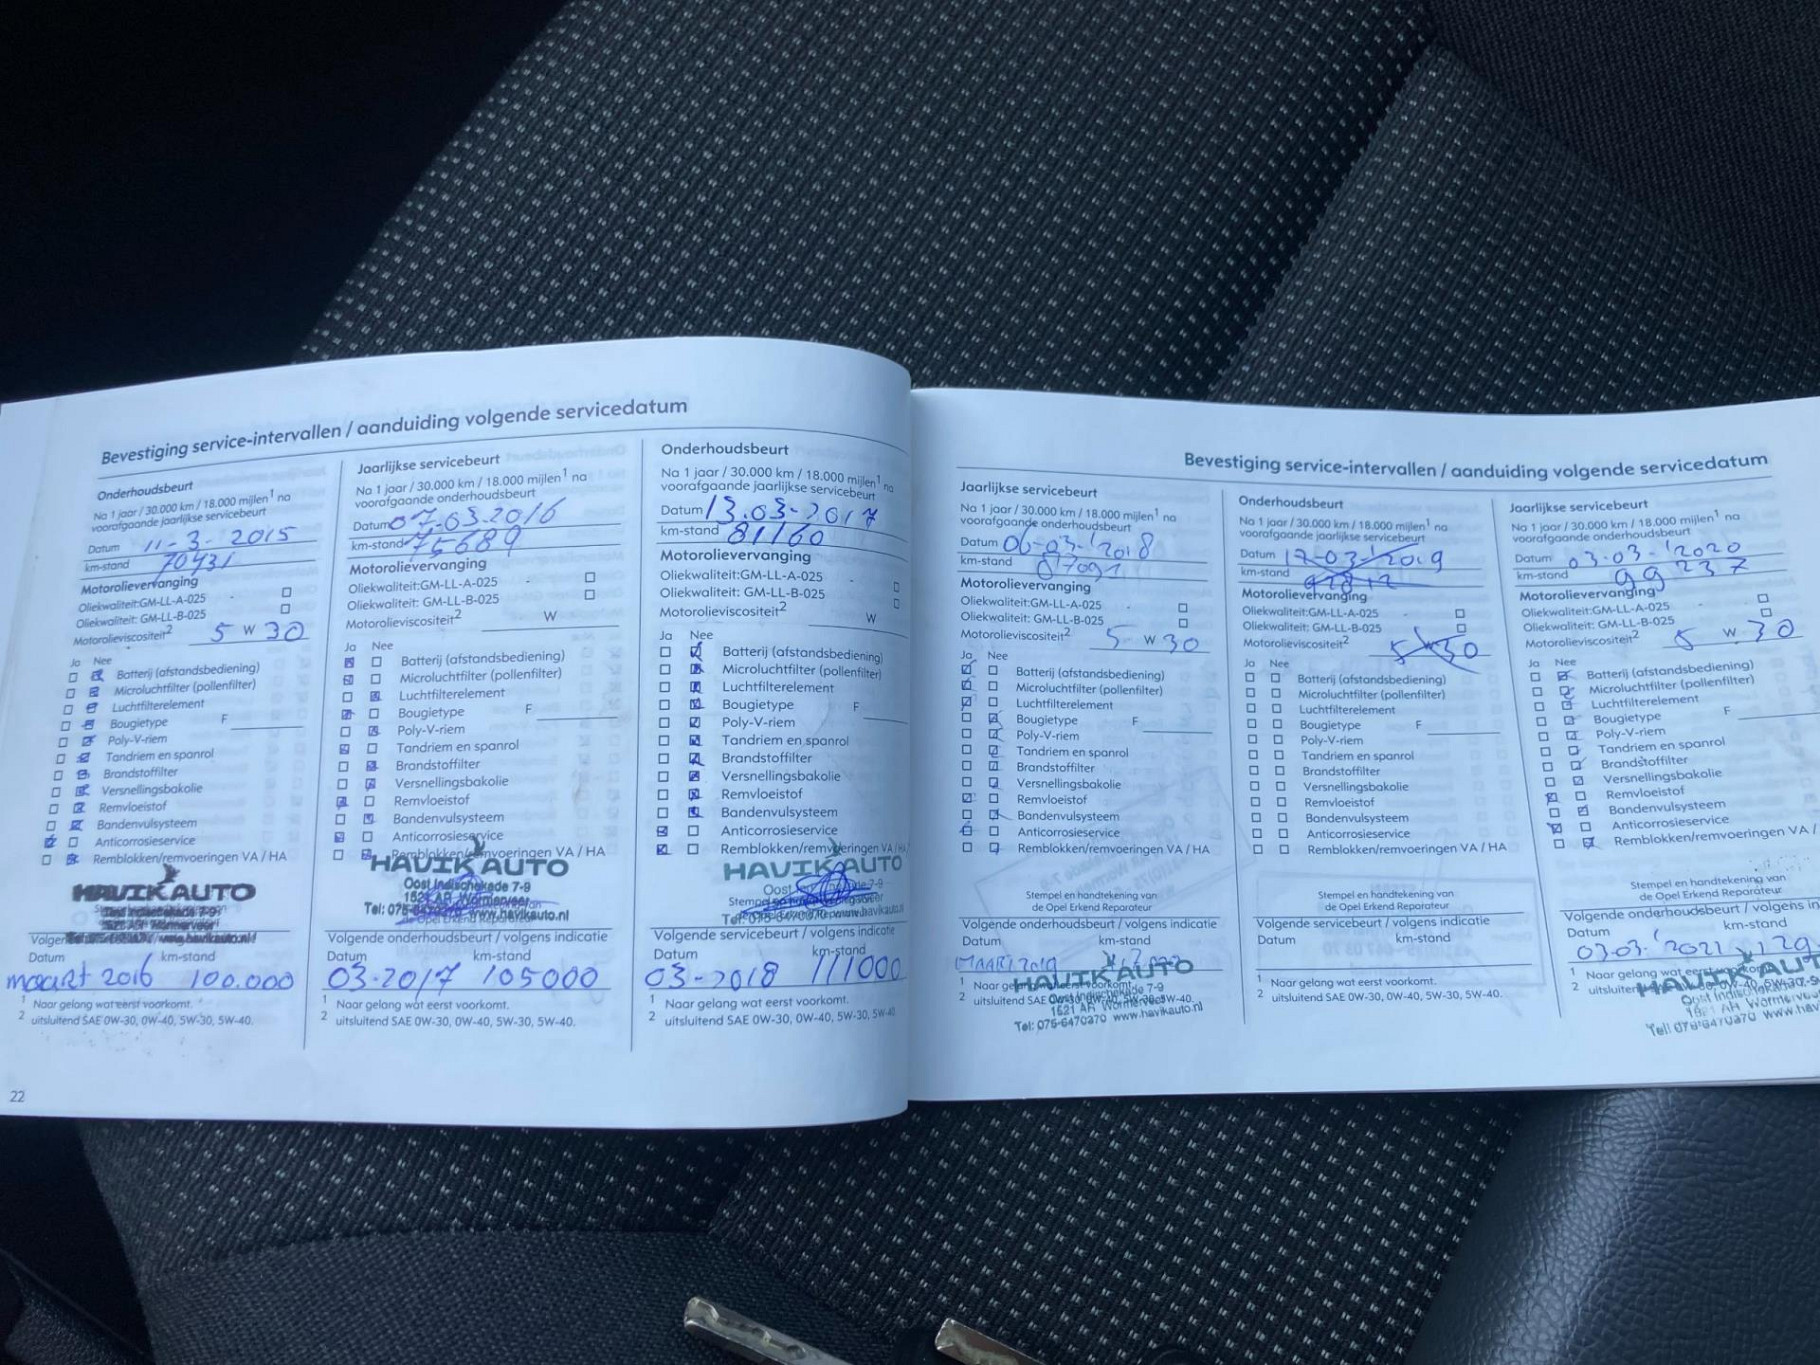 Bevestiging service-intervallen / aanduiding volgende servicedatum
Onderhoudsbeurt
Na 1 jaar / 30.000 km / 18.000 mijlen¹ na
voorafgaande jaarlijkse servicebeurt
Datum 11-3-2015
km-stand 70431
Motorolievervanging
Oliekwaliteit:GM-LL-A-025
Oliekwaliteit: GM-LL-B-025
Motorolieviscositeit² 5 W 30
Ja Nee
Batterij (afstandsbediening)
Microluchtfilter (pollenfilter)
Luchtfilterelement
Bougietype F
Poly-V-riem
Tandriem en spanrol
Brandstoffilter
Versnellingsbakolie
Remvloeistof
Bandenvulsysteem
Anticorrosieservice
Remblokken/remvoeringen VA / HA
HAVIK AUTO
Datum km-stand
maart 2016 100.000
¹ Naar gelang wat eerst voorkomt.
² uitsluitend SAE 0W-30, 0W-40, 5W-30, 5W-40.
22
Jaarlijkse servicebeurt
Na 1 jaar / 30.000 km / 18.000 mijlen¹ na
voorafgaande onderhoudsbeurt
Datum 07-03-2016
km-stand 75689
Motorolievervanging
Oliekwaliteit:GM-LL-A-025
Oliekwaliteit: GM-LL-B-025
Motorolieviscositeit² W
Ja Nee
Batterij (afstandsbediening)
Microluchtfilter (pollenfilter)
Luchtfilterelement
Bougietype F
Poly-V-riem
Tandriem en spanrol
Brandstoffilter
Versnellingsbakolie
Remvloeistof
Bandenvulsysteem
Anticorrosieservice
Remblokken/remvoeringen VA / HA
HAVIK AUTO
Oost Indischekade 7-9
1521 AR Wormerveer
Tel: 075-6470270 www.havikauto.nl
Volgende onderhoudsbeurt / volgens indicatie
Datum km-stand
03-2017 105000
¹ Naar gelang wat eerst voorkomt.
² uitsluitend SAE 0W-30, 0W-40, 5W-30, 5W-40.
Onderhoudsbeurt
Na 1 jaar / 30.000 km / 18.000 mijlen¹ na
voorafgaande jaarlijkse servicebeurt
Datum 13.03-2017
km-stand 81160
Motorolievervanging
Oliekwaliteit:GM-LL-A-025
Oliekwaliteit: GM-LL-B-025
Motorolieviscositeit² W
Ja Nee
Batterij (afstandsbediening)
Microluchtfilter (pollenfilter)
Luchtfilterelement
Bougietype F
Poly-V-riem
Tandriem en spanrol
Brandstoffilter
Versnellingsbakolie
Remvloeistof
Bandenvulsysteem
Anticorrosieservice
Remblokken/remvoeringen VA / HA
HAVIK AUTO
Volgende servicebeurt / volgens indicatie
Datum km-stand
03-2018 111000
¹ Naar gelang wat eerst voorkomt.
² uitsluitend SAE 0W-30, 0W-40, 5W-30, 5W-40
Bevestiging service-intervallen / aanduiding volgende servicedatum
Jaarlijkse servicebeurt
Na 1 jaar / 30.000 km / 18.000 mijlen¹ na
voorafgaande onderhoudsbeurt
Datum 06-03-'2018
km-stand 87091
Motorolievervanging
Oliekwaliteit:GM-LL-A-025
Oliekwaliteit: GM-LL-B-025
Motorolieviscositeit² 5 W 30
Ja Nee
Batterij (afstandsbediening)
Microluchtfilter (pollenfilter)
Luchtfilterelement
Bougietype F
Poly-V-riem
Tandriem en spanrol
Brandstoffilter
Versnellingsbakolie
Remvloeistof
Bandenvulsysteem
Anticorrosieservice
Remblokken/remvoeringen VA / HA
Stempel en handtekening van
de Opel Erkend Reparateur
Volgende onderhoudsbeurt / volgens indicatie
Datum km-stand
MAART 2019
HAVIK AUTO
1521 AR Wormerveer
Tel: 075-6470270 www.havikauto.nl
Onderhoudsbeurt
Na 1 jaar / 30.000 km / 18.000 mijlen¹ na
voorafgaande jaarlijkse servicebeurt
Datum 12-03-'2019
km-stand
Motorolievervanging
Oliekwaliteit:GM-LL-A-025
Oliekwaliteit: GM-LL-B-025
Motorolieviscositeit² 5W30
Ja Nee
Batterij (afstandsbediening)
Microluchtfilter (pollenfilter)
Luchtfilterelement
Bougietype F
Poly-V-riem
Tandriem en spanrol
Brandstoffilter
Versnellingsbakolie
Remvloeistof
Bandenvulsysteem
Anticorrosieservice
Remblokken/remvoeringen VA / HA
Stempel en handtekening van
de Opel Erkend Reparateur
Volgende servicebeurt / volgens indicatie
Datum km-stand
¹ Naar gelang wat eerst voorkomt.
² uitsluitend SAE 0W-30, 0W-40, 5W-30, 5W-40.
Jaarlijkse servicebeurt
Na 1 jaar / 30.000 km / 18.000 mijlen¹ na
voorafgaande onderhoudsbeurt
Datum 03-03-'2020
km-stand 99237
Motorolievervanging
Oliekwaliteit:GM-LL-A-025
Oliekwaliteit: GM-LL-B-025
Motorolieviscositeit² 5 W 30
Ja Nee
Batterij (afstandsbediening)
Microluchtfilter (pollenfilter)
Luchtfilterelement
Bougietype F
Poly-V-riem
Tandriem en spanrol
Brandstoffilter
Versnellingsbakolie
Remvloeistof
Bandenvulsysteem
Anticorrosieservice
Remblokken/remvoeringen VA /
Stempel en handtekening van
de Opel Erkend Reparateur
Volgende onderhoudsbeurt / volgens in
Datum km-stand
03.03.'2021 129